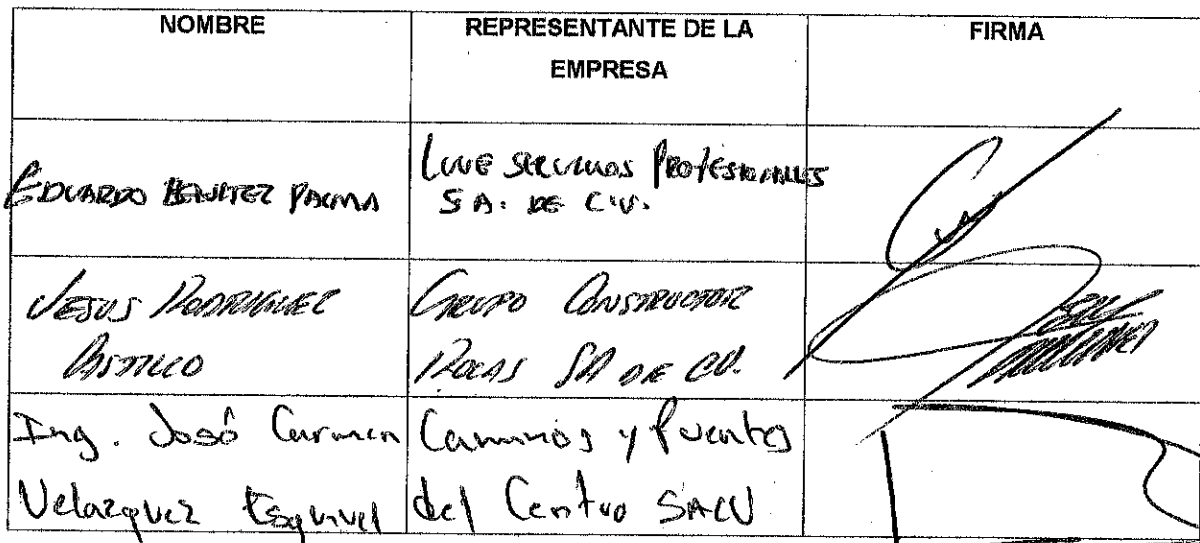 NOMBRE
REPRESENTANTE DE LA
EMPRESA
FIRMA
EDUARDO BENITEZ PALMA
SERVICIOS PROFESIONALES
S.A. DE C.V.
JESUS RODRIGUEZ
CASTILLO
GRUPO CONSTRUCTOR
SA DE CV.
Ing. José Carmen
Velazquez Esquivel
Caminos y Puentes
del Centro SACV